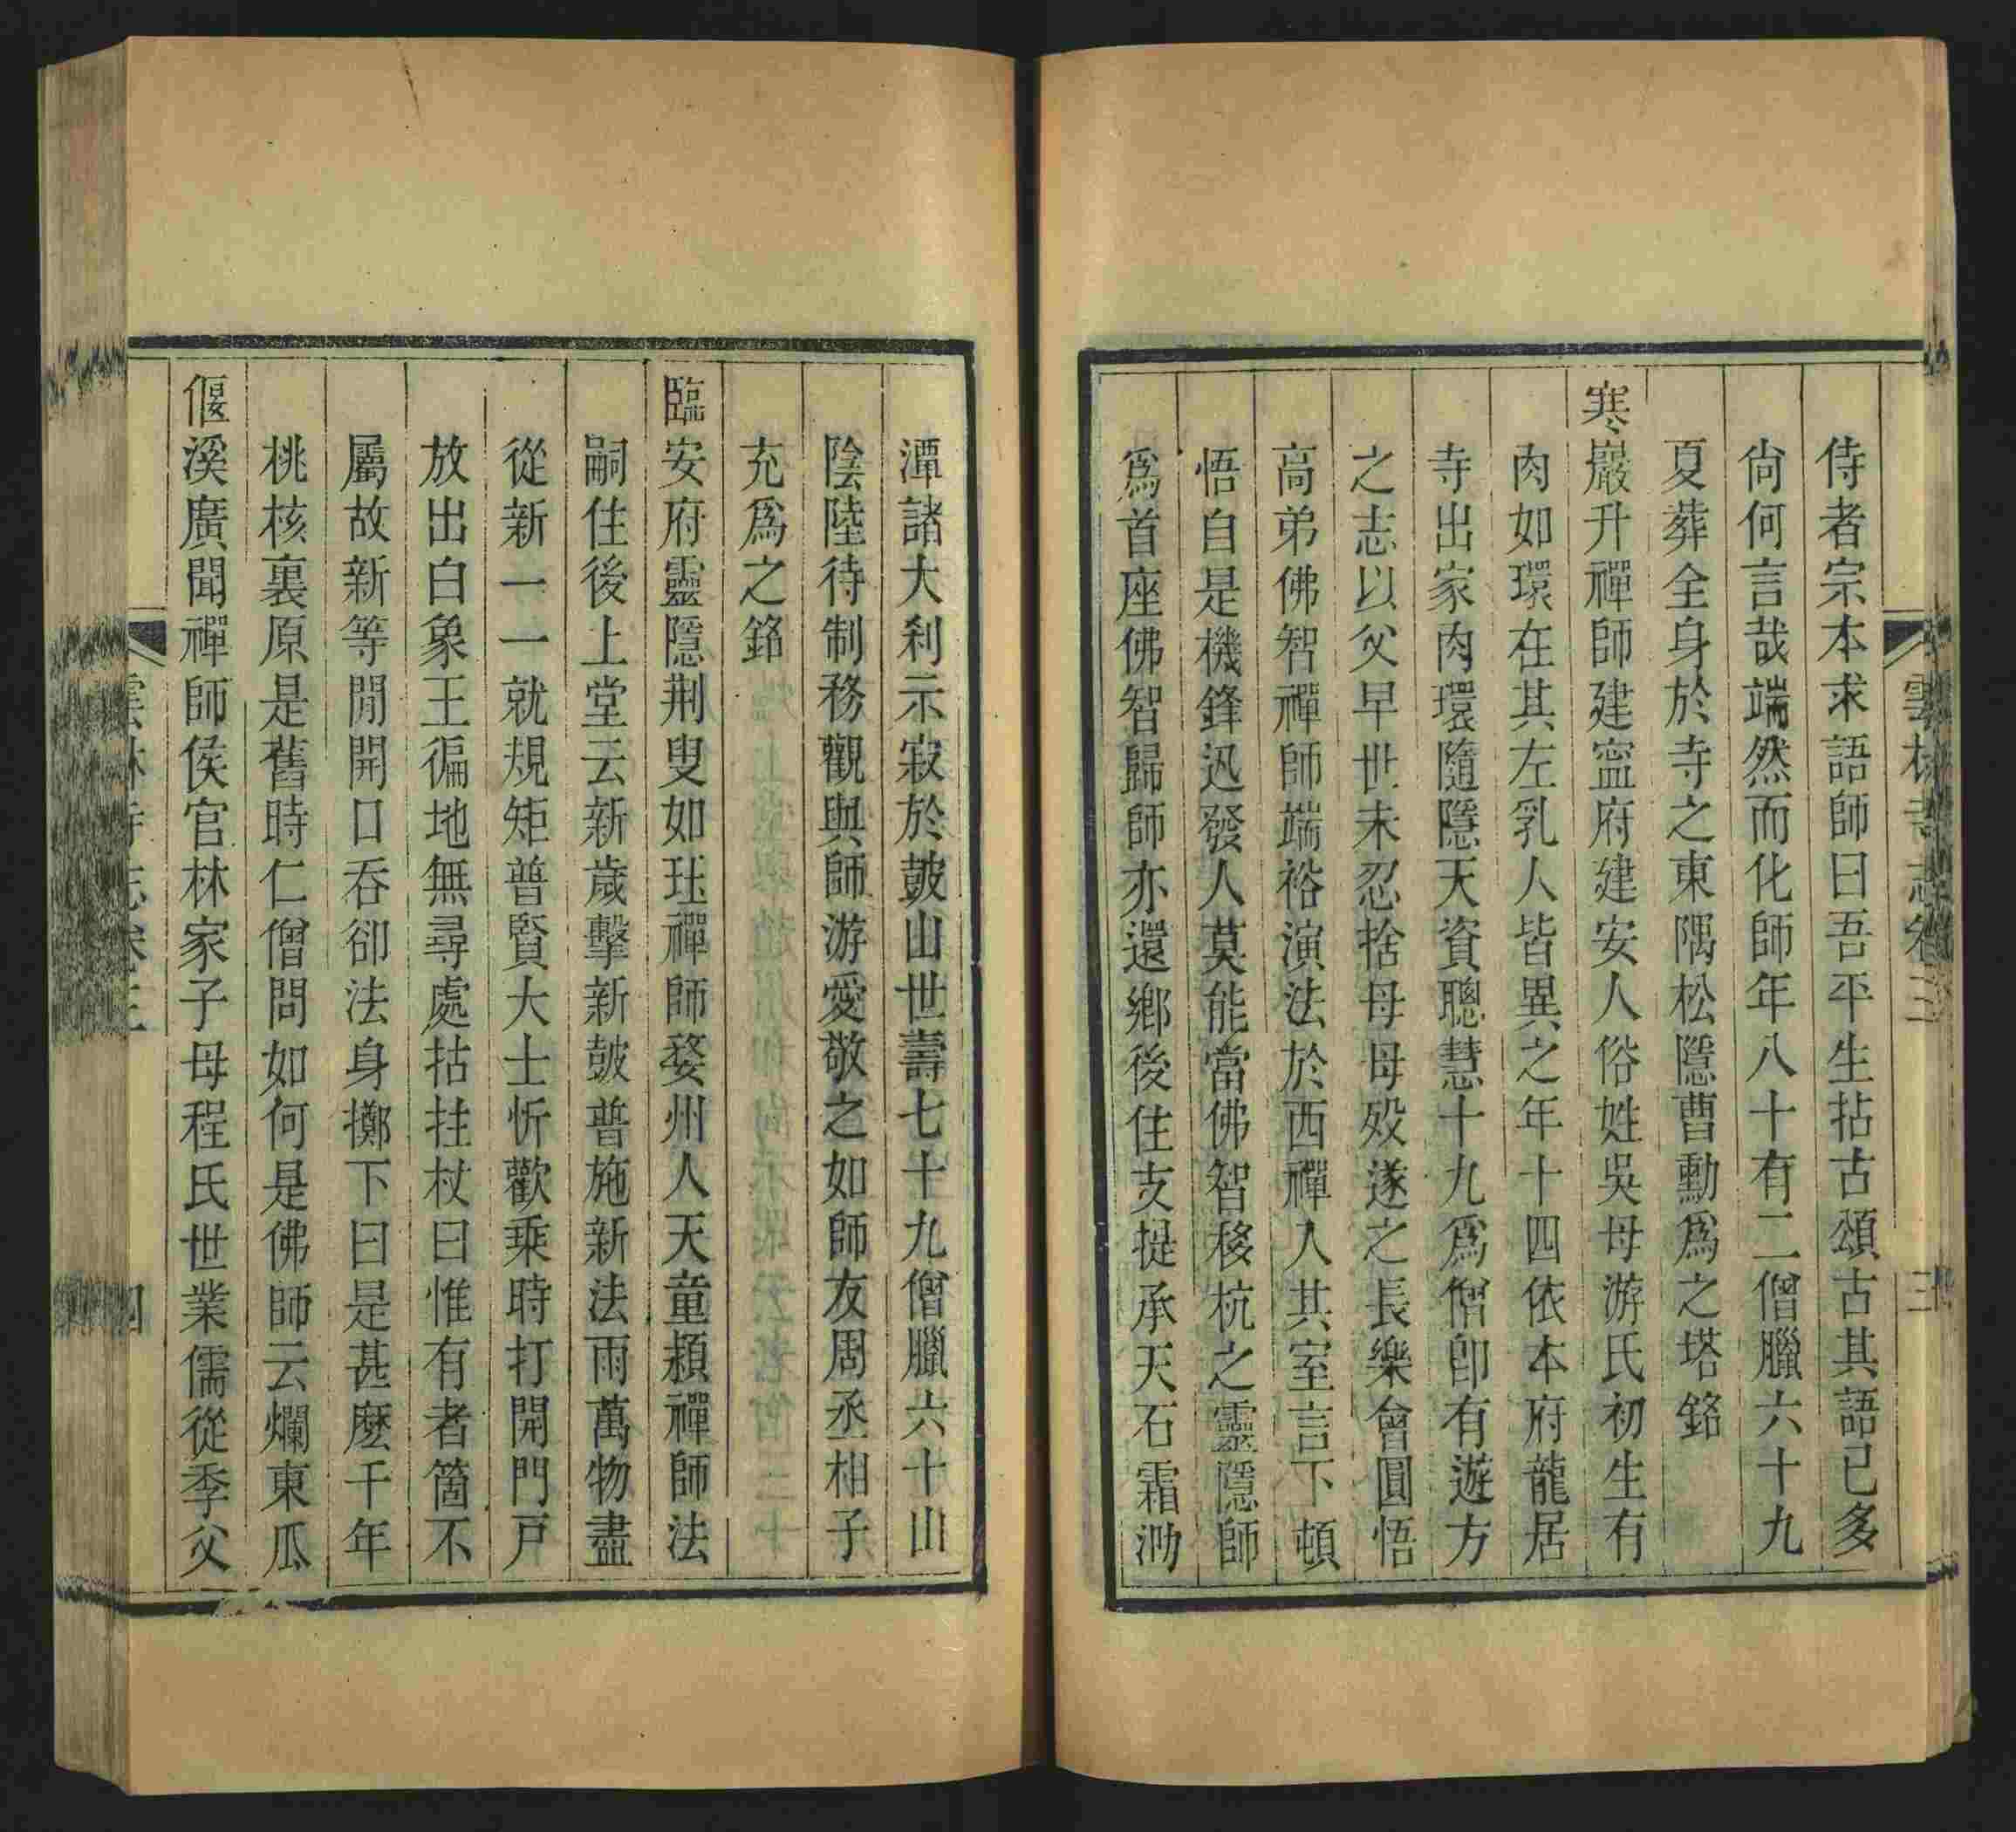 雲林寺志卷三
三
侍者宗本求語師曰吾平生拈古頌古其語已多
尙何言哉端然而化師年八十有二僧臘六十九
夏葬全身於寺之東隅松隱曹勳爲之塔銘
寒巖升禪師建寍府建安人俗姓吳母游氏初生有
肉如環在其左乳人皆異之年十四依本府龍居
寺出家肉環隨隱天資聰慧十九爲僧卽有遊方
之志以父早世未忍捨母母歿遂之長樂會圓悟
高弟佛智禪師端裕演法於西禪入其室言下頓
悟自是機鋒迅發人莫能當佛智移杭之靈隱師
爲首座佛智歸師亦還鄉後住支提承天石霜泐
潭諸大刹示寂於皷山世壽七十九僧臘六十山
陰陸待制務觀與師游愛敬之如師友周丞相子
充爲之銘
臨安府靈隱荆叟如珏禪師婺州人天童頴禪師法
嗣住後上堂云新歲擊新皷普施新法雨萬物盡
從新一一就規矩普賢大士忻歡乘時打開門戸
放出白象王徧地無尋處拈拄杖曰惟有者箇不
屬故新等閒開口吞卻法身擲下曰是甚麼千年
桃核裏原是舊時仁僧問如何是佛師云爛東瓜
偃溪廣聞禪師侯官林家子母程氏世業儒從季父
雲林寺志卷三
四